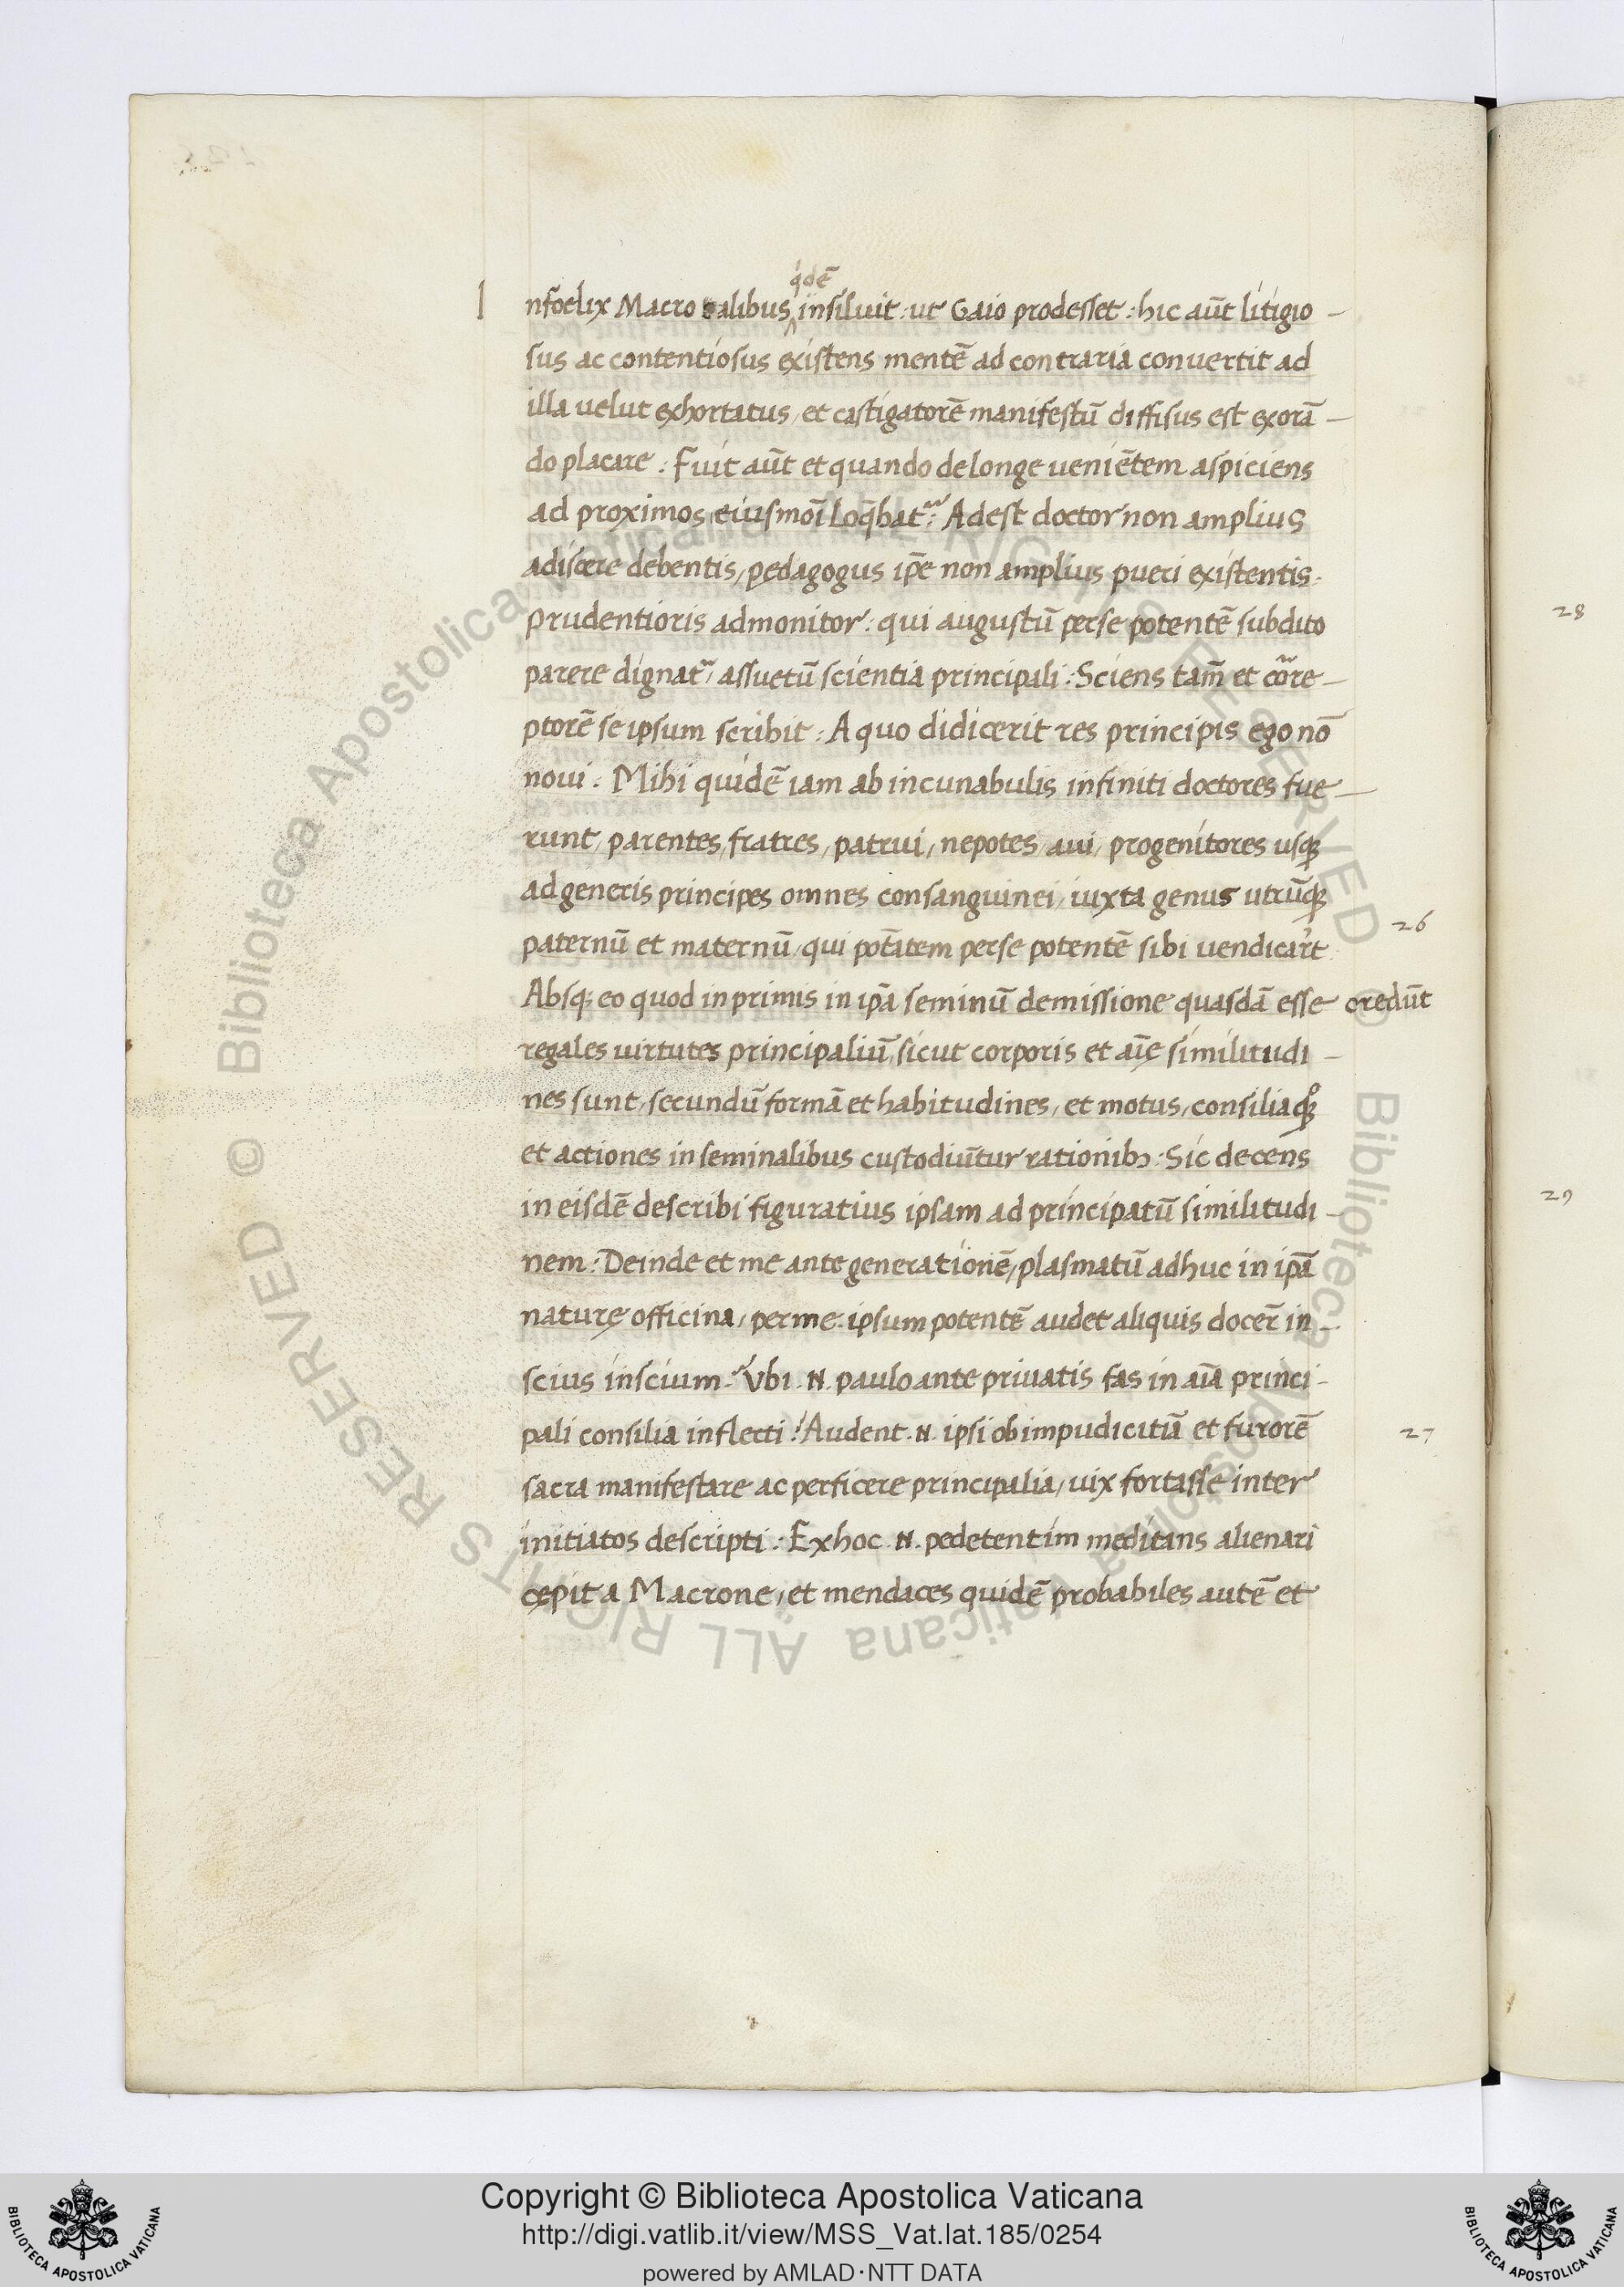 q̇dē
I nfoelix Macro talibus insiluit: ut Gaio prodesset: hic aūt litigio-
sus ac contentiosus existens mentē ad contraria convertit ad
illa velut exhortatus, et castigatorē manifestū diffisus est exorā-
do placare: Fuit aūt et quando de longe veniētem aspiciens
ad proximos eiusmoī loq̄bat: Adest doctor non amplius
adiscere debentis, pedagogus ip̄e non amplius pueri existentis.
prudentioris admonitor: qui augustū per se potentē subdito
parere dignat, assuetū scientia principali: Sciens tam̄ et core-
ptorē se ipsum scribit: A quo didicerit res principis ego nō
novi: Mihi quidē iam ab incunabulis infiniti doctores fue-
runt, parentes, fratres, patrui, nepotes, avi, progenitores usq̨
ad generis principes omnes consanguinei, iuxta genus utrūq̨
paternū et maternū, qui potātem per se potentē sibi vendicar̄t
26
Absq̨ eo quod in primis in ip̄a seminū demissione quasdā esse credūt
regales virtutes principaliū, sicut corporis et aīe similitudi-
nes sunt, secundū formā et habitudines, et motus, consiliaq̨
et actiones in seminalibus custodiūtur rationibꝫ: Sic decens
in eisdē describi figuratius ipsam ad principatū similitudi-
nem: Deinde et me ante generationē, plasmatū adhuc in ip̄a
naturę officina, per me ipsum potentē audet aliquis docer̄ in-
scius inscium: Vbi .N. paulo ante privatis fas in aīa princi-
pali consilia inflecti! Audent .N. ipsi ob impudicitiā et furorē
27
sacra manifestare ac perficere principalia, vix fortasse inter
initiatos descripti: Ex hoc .N. pedetentim meditans alienari
cępit a Macrone, et mendaces quidē probabiles autē et
28
29
Copyright © Biblioteca Apostolica Vaticana
http://digi.vatlib.it/view/MSS_Vat.lat.185/0254
powered by AMLAD·NTT DATA
BIBLIOTECA APOSTOLICA VATICANA
BIBLIOTECA APOSTOLICA VATICANA
© Biblioteca Apostolica Vaticana ALL RIGHTS RESERVED
© Biblioteca Apostolica Vaticana ALL RIGHTS RESERVED